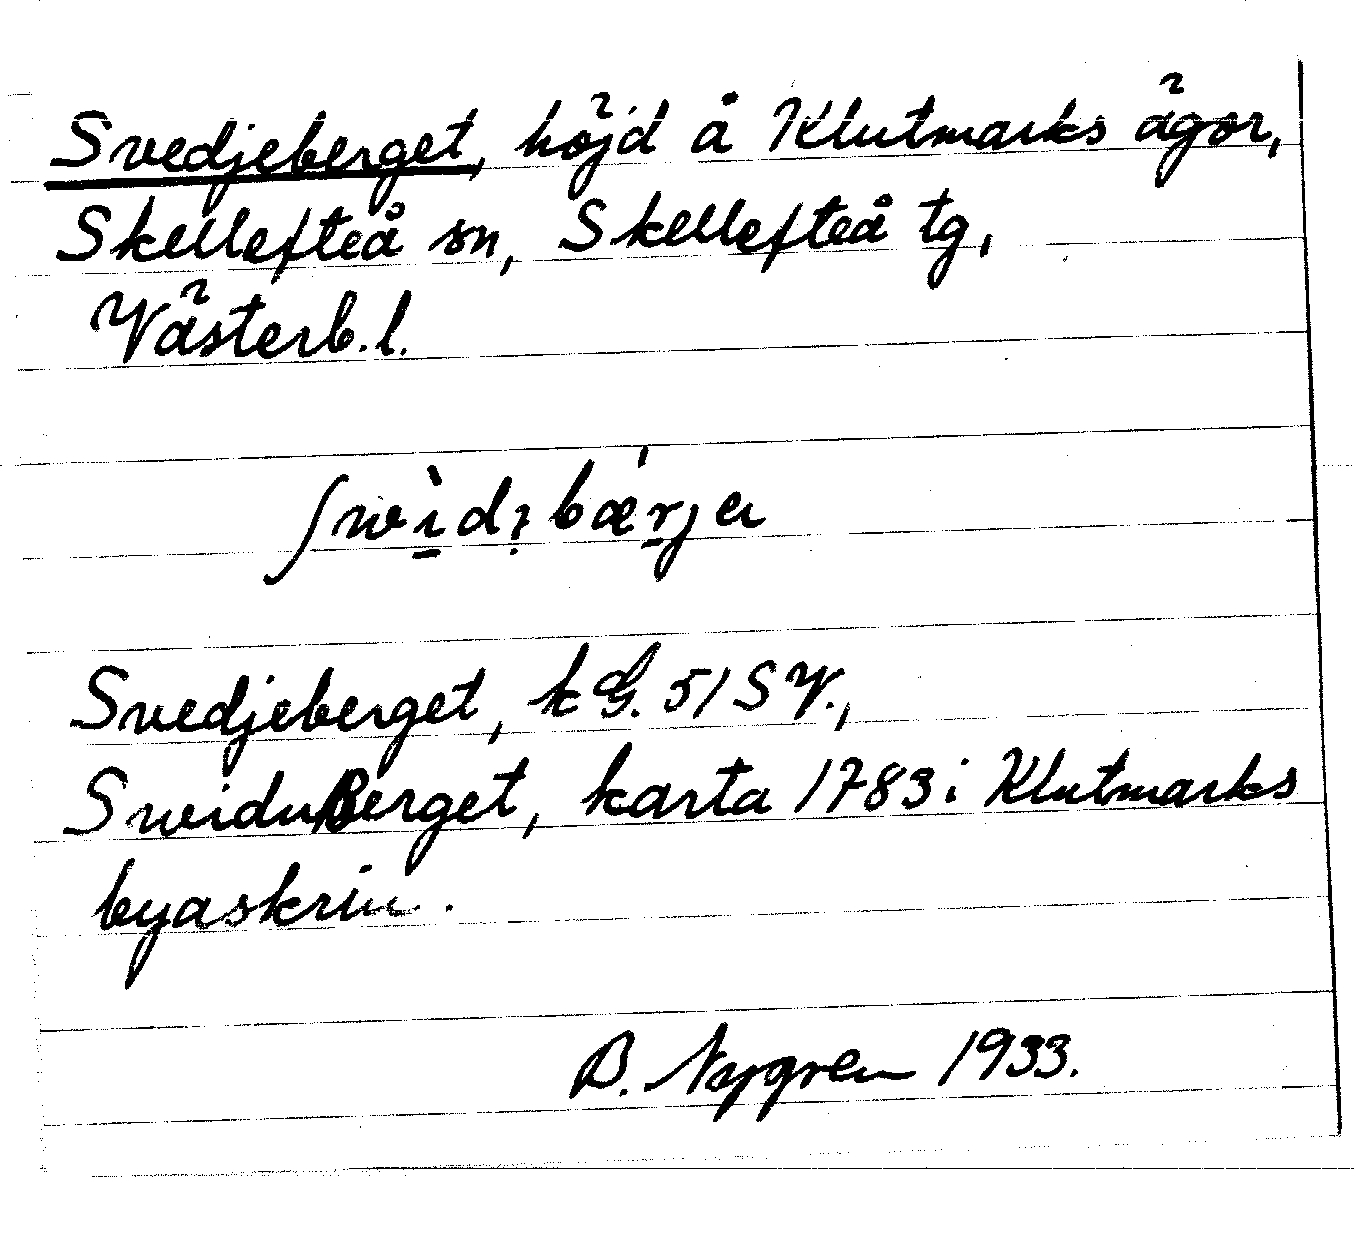 Svedjeberget, höjd å Klutmarks ägor,
Skellefteå sn, Skellefteå tg,
Västerb. l.
Svedjeberget, kG. 51 SV.,
SweiduBerget, karta 1783 i Klutmarks
byaskrin.
B. Nygren 1933.